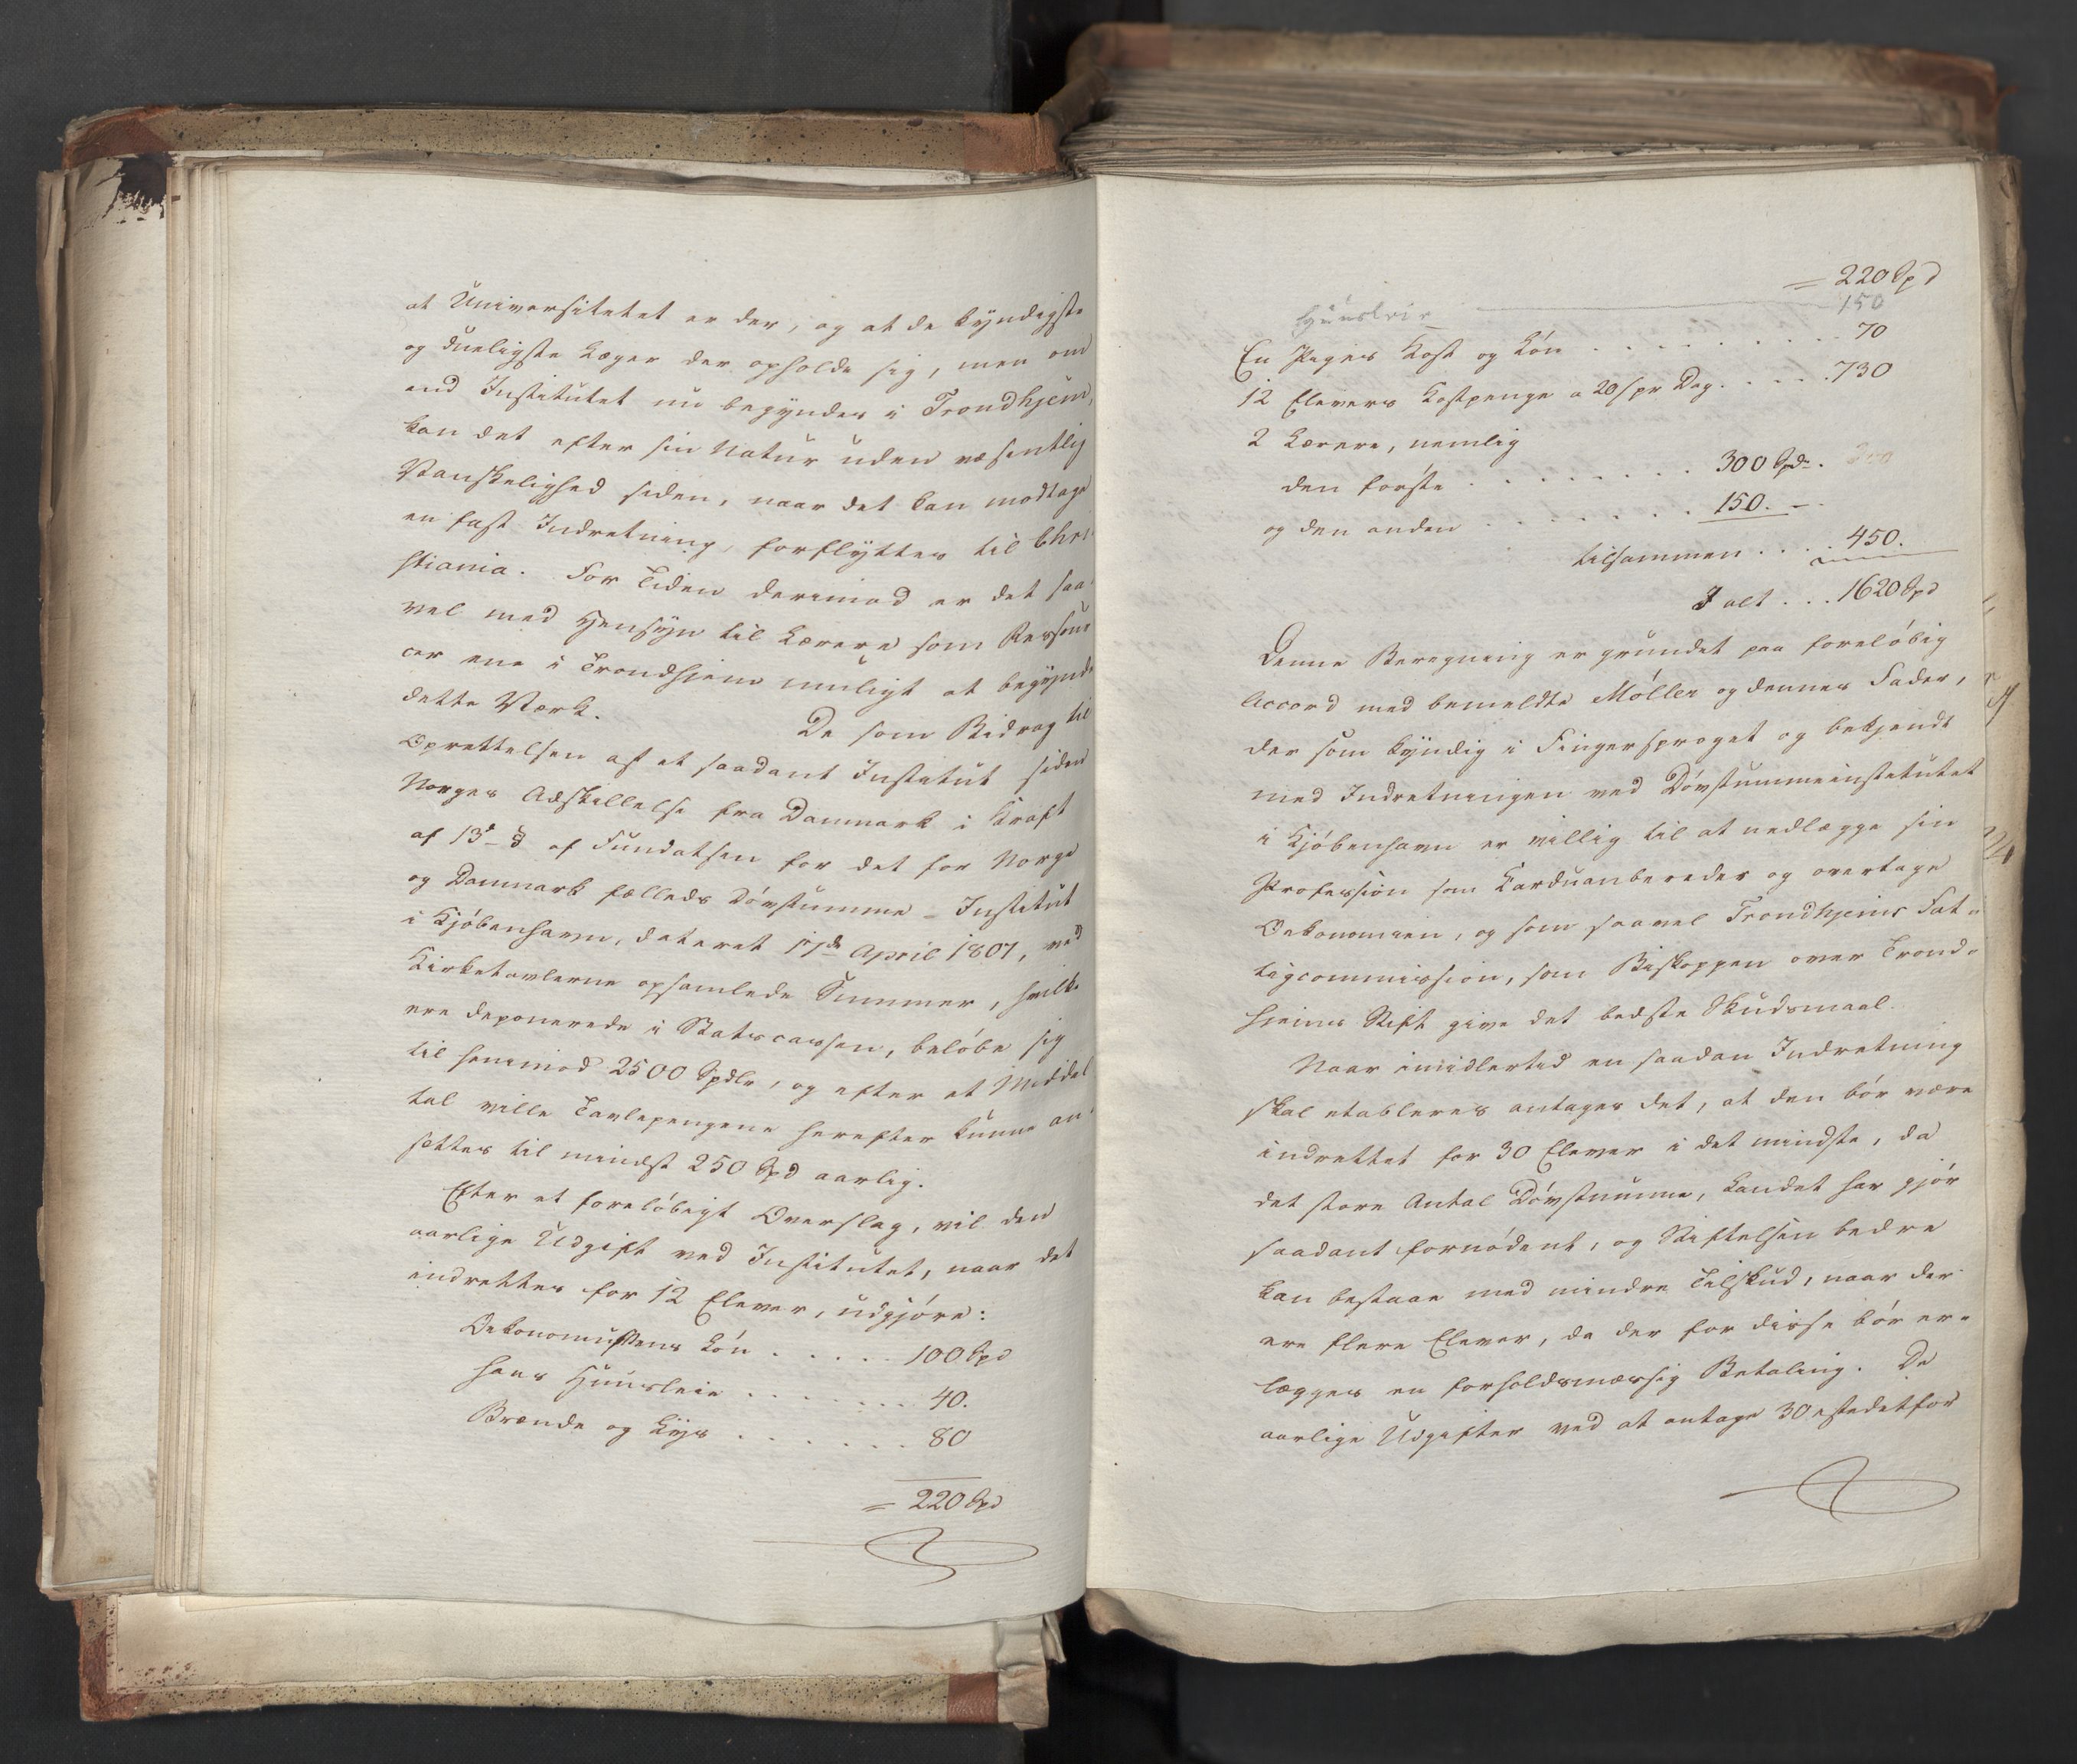 at Universitetet er der, og at de kyndigste
og dueligste Læger der opholde sig, men om
end Institutet nu begyndes i Trondhjem,
kan det efter sin Natur uden væsentlig
Vanskelighed siden, naar det kan modtage
en fast Indretning, forflyttes til Chri-
stiania. For Tiden derimod er det saa-
vel med Hensyn til Lærere som Ressour
cer ene i Trondhjem muligt at begynde
dette Værk.
De som Bidrag til
Oprettelsen af et saadant Institut siden
Norges Adskillelse fra Danmark i Kraft
af 13de § af Fundatsen for det for Norge
og Danmark fælleds Døvstumme-Institut
i Kjøbenhavn, dateret 17de April 1807, ved
Kirketavlerne opsamlede Summer, hvilke
ere deponerede i Statscassen, beløbe sig
til henimod 2500 Spdlr, og efter et Middel
tal ville Tavlepengene herefter kunne an-
sættes til mindst 250 Spd aarlig.
Efter et foreløbigt Overslag, vil den
aarlige Udgift ved Institutet, naar det
indrettes for 12 Elever, udgjøre:
Oekonomussens Løn . . . . . 100 Spd
hans Huusleie . . . . . . . 40.
Brænde og Lys . . . . . . . 80
= 220 Spd
= 220 Spd
Huusleie 150
En Piges Kost og Løn . . . . . . . . . 70
12 Elevers Kostpenge a 20 s pr Dag . . . . . 730
2 Lærere, nemlig
den første . . . . . . . 300 Spd. 300
og den anden . . . . . . . 150. -
tilsammen . . . . 450.
I alt . . . 1620 Spd
Denne Beregning er grundet paa foreløbig
Accord med bemeldte Møller og dennes Fader,
der som kyndig i Fingersproget og bekjendt
med Indretningen ved Døvstummeinstitutet
i Kjøbenhavn er villig til at nedlægge sin
Profession som Karduanbereder og overtage
Oekonomien, og som saavel Trondhjems Fat-
tigcommission, som Biskoppen over Trond-
hjems Stift give det bedste Skudsmaal.
Naar imidlertid en saadan Indretning
skal etableres antages det, at den bør være
indrettet for 30 Elever i det mindste, da
det store Antal Døvstumme, Landet har gjør
saadant fornødent, og Stiftelsen bedre
kan bestaae med mindre Tilskud, naar der
ere flere Elever, da der for disse bør er-
lægges en forholdsmæssig Betaling. De
aarlige Udgifter ved at antage 30 istedetfor